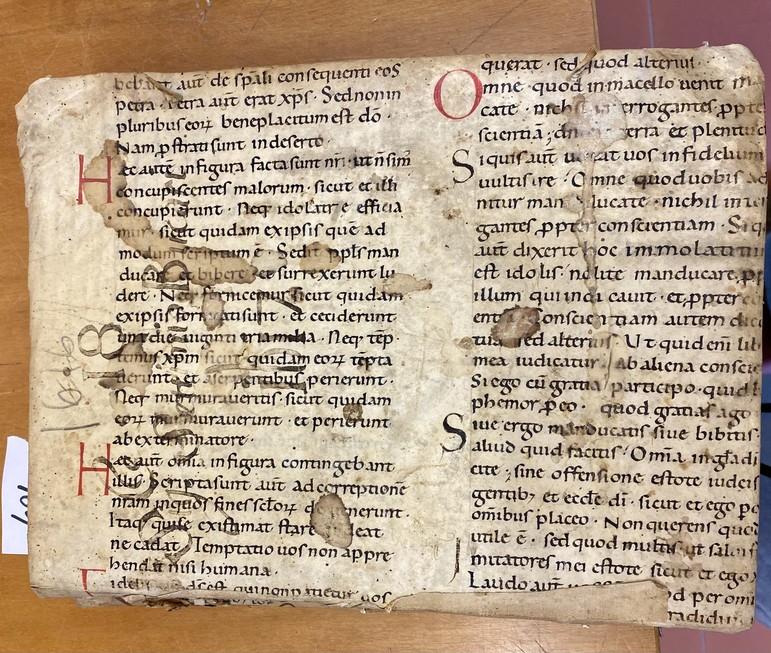 bebant aut̄ de sp̄ali consequenti eos
petra · Petra aut̄ erat xp̄s · Sed non in
pluribus eoꝝ beneplacitum est dō ·
Nam ꝓstrati sunt in deserto ·
Hec autē in figura facta sunt nr̄i · ut n̄ sim᷒
concupiscentes malorum · sicut et illi
concupierunt · Neq; idolatrę efficia
mur · sicut quidam ex ipsis quē ad
modum scriptum ē · Sedit ppl̄s man
ducare et bibere · et surrexerunt lu
dere · Neq; fornicemur sicut quidam
ex ipsis fornicati sunt · et ceciderunt
una die uiginti tria milia · Neq; tēp
temus xp̄m sicut quidam eoꝝ tēpta
uerunt · et a serpentibus perierunt ·
Neq; murmuraueritis · sicut quidam
eoꝝ murmurauerunt · et perierunt
ab exterminatore ·
Hec aut̄ om̄ia in figura contingebant
illis · Scripta sunt aut̄ ad correptionē
nr̄am in quos fines scl̄oꝝ nerunt ·
Itaq; qui se existimat stare leat
ne cadat · Temptatio uos non appre
hendat nisi humana ·
qui non patietur uos
querat · sed quod alterius ·
Omne · quod in macello uenit
cate · nichil interrogantes ꝓpte
scientiā ; dn̄i terra et plenitud
Si quis aut̄ uocat uos infidelium
uultis ire · Omne quod uobis ad
nitur manducate · nichil inter
gantes ꝓpter conscientiam · Si q
aut̄ dixerit hoc immolatitiu
est idolis · nolite manducare · ꝓp
illum qui indicauit · et ꝓpter
conscientiam autem dico
tuā sed alterius · Ut quid em̄ lib
mea iudicatur ab aliena consci
Si ego cū gratia participo · quid b
phemor ꝓ eo · quod gratias ago
Siue ergo manducatis siue bibitis
aliud quid facitis · Om̄ia in gl̄a di
cite ; sine offensione estote iudeis
gentib; et eccl̄e di᷒ · sicut et ego ꝑ o
omībus placeo · Non querens quod
utile ē · sed quod multis · ut salui s
Imitatores mei estote sicut et ego x
Laudo aut̄ d per omi
tradidi
1646
18